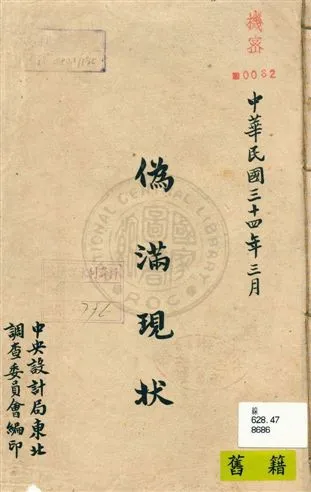 機密
0082
中華民國三十四年三月
偽滿現狀
中央設計局東北
調查委員會編印
NATIONAL CENTRAL LIBRARY
ROC
628.47
8686
舊籍